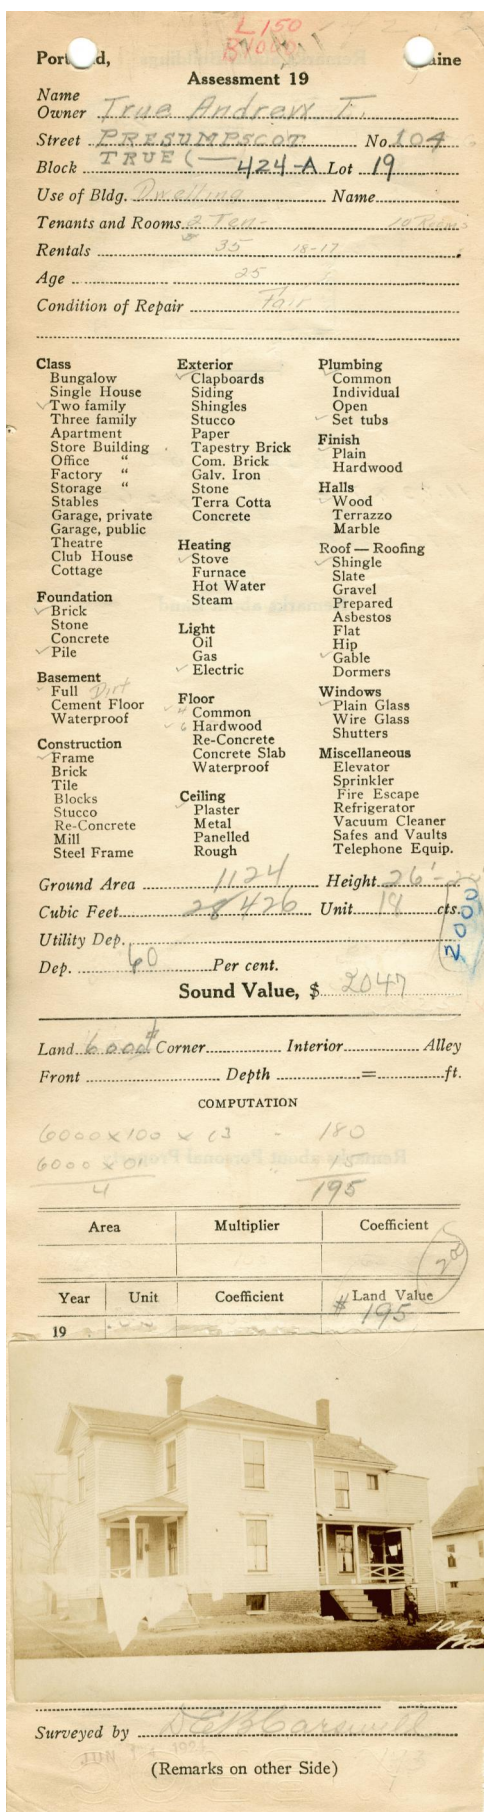 L150
B1000
Portland, Maine
Assessment 19
Name
Owner True Andrew T.
Street PRESUMPSCOT No. 104
TRUE (
Block 424-A Lot 19
Use of Bldg. Dwelling Name
Tenants and Rooms 2 Ten- 10 Rooms
Rentals 35 18-17
Age 25
Condition of Repair Fair
Class
Bungalow
Single House
✓ Two family
Three family
Apartment
Store Building
Office "
Factory "
Storage "
Stables
Garage, private
Garage, public
Theatre
Club House
Cottage
Foundation
✓ Brick
Stone
Concrete
✓ Pile
Basement
✓ Full Dirt
Cement Floor
Waterproof
Construction
✓ Frame
Brick
Tile
Blocks
Stucco
Re-Concrete
Mill
Steel Frame
Exterior
✓ Clapboards
Siding
Shingles
Stucco
Paper
Tapestry Brick
Com. Brick
Galv. Iron
Stone
Terra Cotta
Concrete
Heating
✓ Stove
Furnace
Hot Water
Steam
Light
Oil
Gas
✓ Electric
Floor
✓ 4 Common
✓ 6 Hardwood
Re-Concrete
Concrete Slab
Waterproof
Ceiling
✓ Plaster
Metal
Panelled
Rough
Plumbing
✓ Common
Individual
Open
✓ Set tubs
Finish
✓ Plain
Hardwood
Halls
✓ Wood
Terrazzo
Marble
Roof — Roofing
✓ Shingle
Slate
Gravel
Prepared
Asbestos
Flat
Hip
✓ Gable
Dormers
Windows
✓ Plain Glass
Wire Glass
Shutters
Miscellaneous
Elevator
Sprinkler
Fire Escape
Refrigerator
Vacuum Cleaner
Safes and Vaults
Telephone Equip.
Ground Area 1124 Height 26'-
Cubic Feet 28426 Unit 18 cts.
2000
Utility Dep.
Dep. 60 Per cent.
Sound Value, $ 2047
Land 6000 Corner Interior Alley
Front Depth = ft.
COMPUTATION
6000 x 100 x 03 - 180
6000 x 01 15
4 195
Area Multiplier Coefficient
200
Year Unit Coefficient Land Value
19 # 195
104
Surveyed by
JUN 14 192
143
(Remarks on other Side)